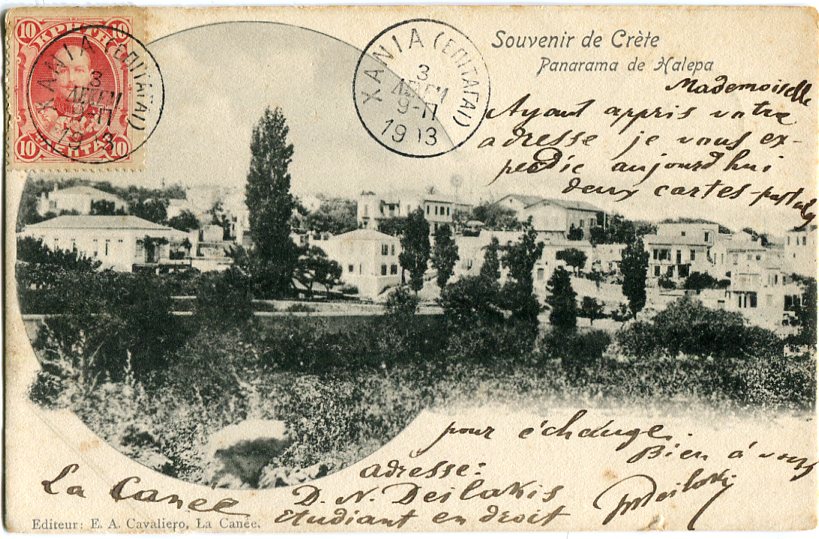 10 ΚΡΗΤΗ 10
10 ΛΕΠΤΑ 10
ΧΑΝΙΑ (ΕΠΙΤΑΓΑΙ)
3
9-11
ΧΑΝΙΑ (ΕΠΙΤΑΓΑΙ)
3
9-11
Souvenir de Crète
Panarama de Halepa
Mademoiselle
Ayant appris votre
adresse je vous ex-
pedie aujourd'hui
deux cartes-postales
pour échange.
Bien à vous
adresse:
La Canée
D. N. Deilakis
étudiant en droit
Editeur: E. A. Cavaliero, La Canée.